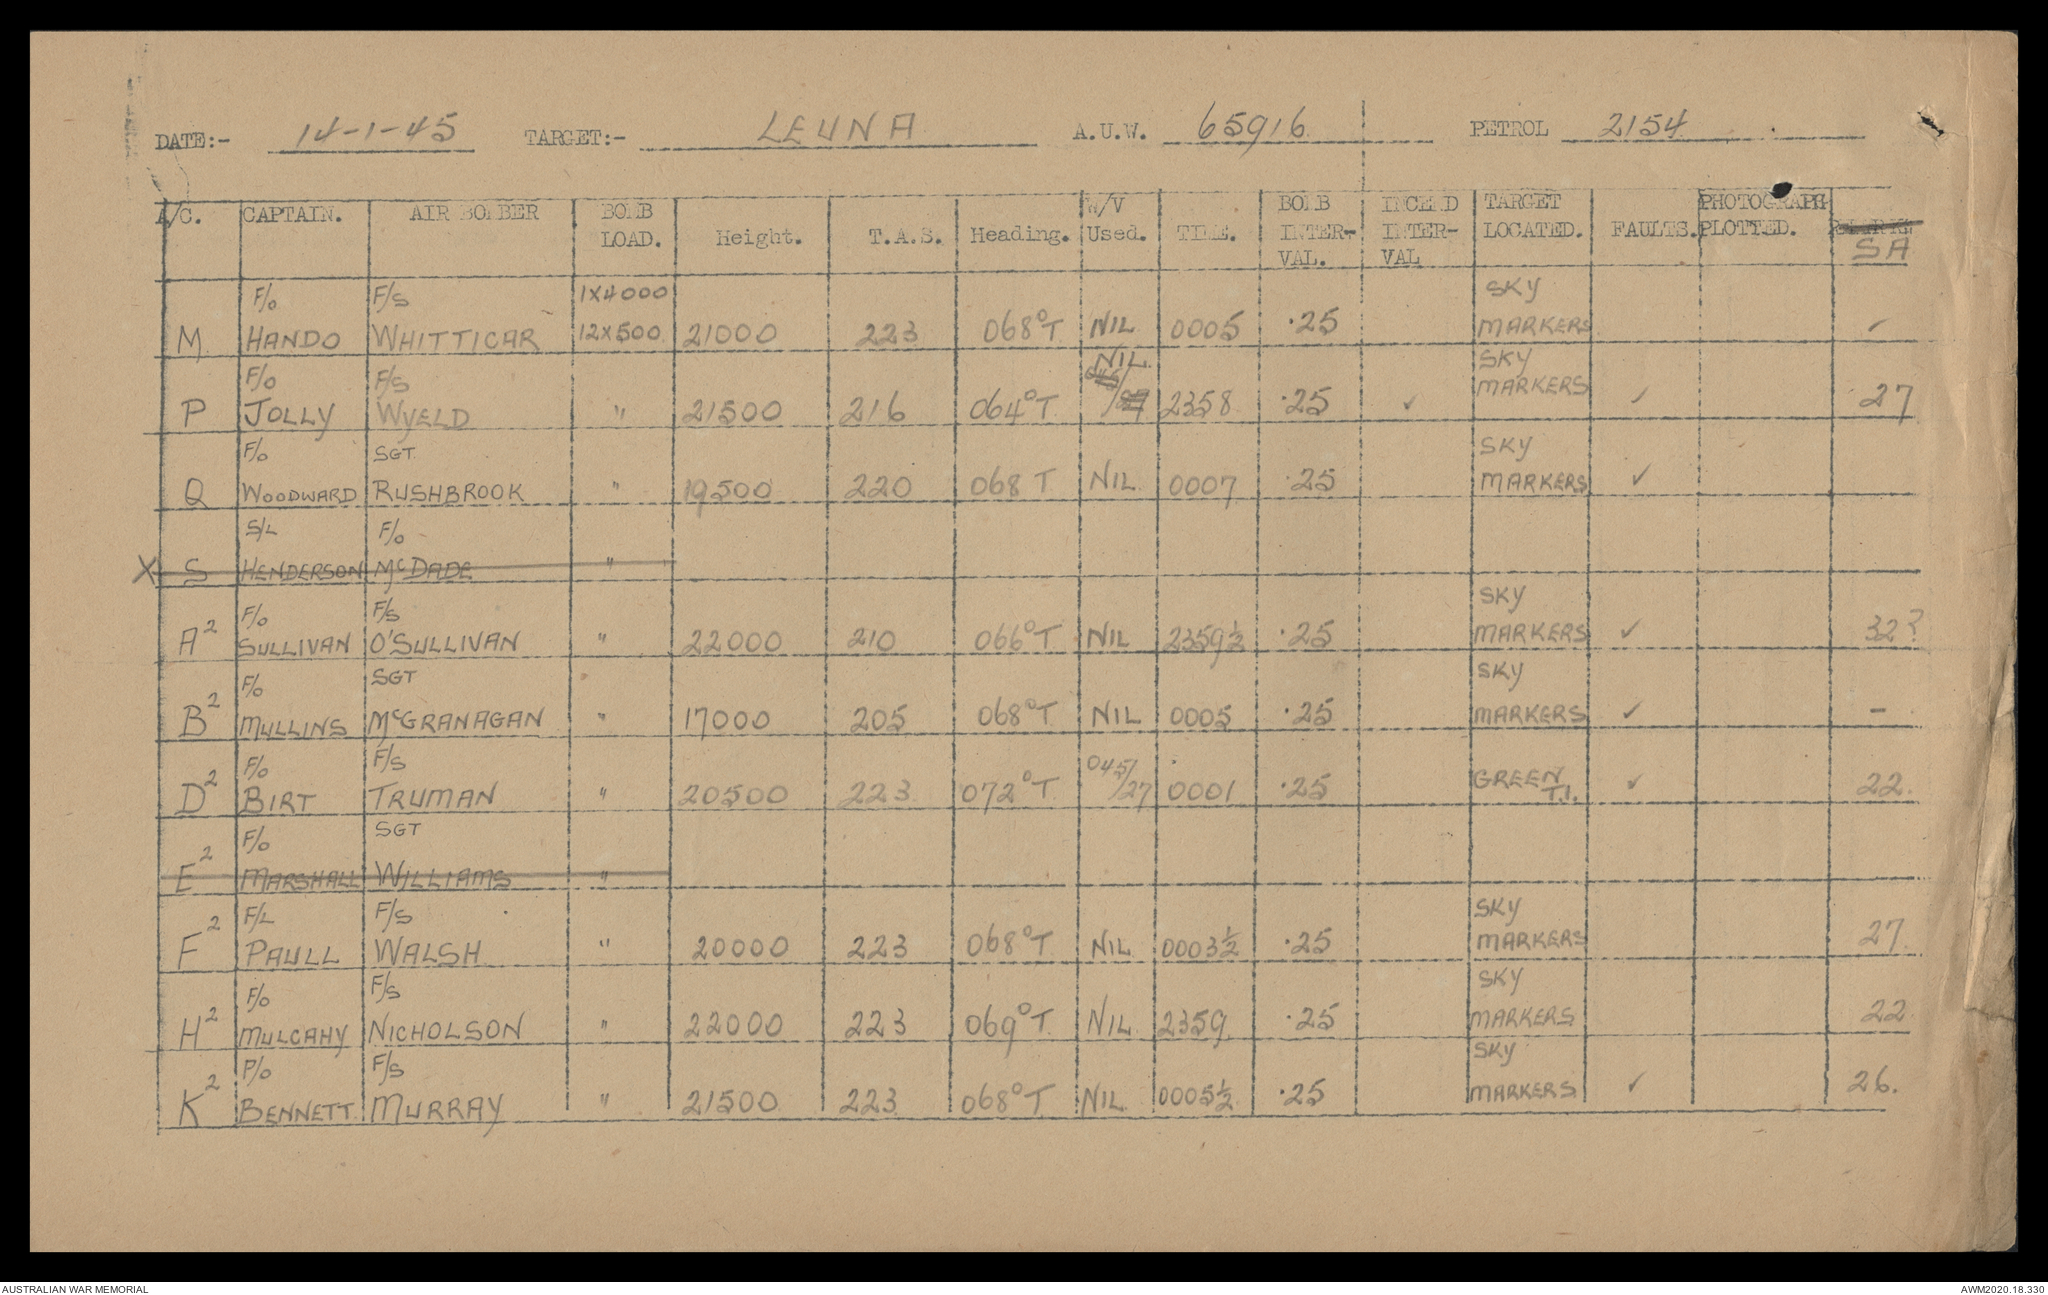 DATE:- 14-1-45 TARGET:- LEUNA A.U.W. 65916 PETROL 2154
A/C. CAPTAIN. AIR BOMBER BOMB LOAD. Height. T.A.S. Heading. W/V Used. TIME. BOMB INTER-VAL. INCEND INTER-VAL TARGET LOCATED. FAULTS. PHOTOGRAPH PLOTTED. SA
F/O F/S 1X4000 SKY
M HANDO WHITTICAR 12X500 21000 223 068°T NIL 0005 .25 MARKERS ✓
F/O F/S NIL SKY
P JOLLY WYELD " 21500 216 064°T 2358 .25 ✓ MARKERS ✓ 27
F/O SGT SKY
Q WOODWARD RUSHBROOK " 19500 220 068 T NIL 0007 .25 MARKERS ✓
S/L F/O
X S HENDERSON McDADE "
F/O F/S SKY
A2 SULLIVAN O'SULLIVAN " 22000 210 066°T NIL 2359½ .25 MARKERS ✓ 32?
F/O SGT SKY
B2 MULLINS McGRANAGAN " 17000 205 068°T NIL 0005 .25 MARKERS ✓ -
F/O F/S
D2 BIRT TRUMAN " 20500 223 072°T 045/27 0001 .25 GREEN T.I. ✓ 22.
F/O SGT
E2 MARSHALL WILLIAMS "
F/L F/S SKY
F2 PAULL WALSH " 20000 223 068°T NIL 0003½ .25 MARKERS 27.
F/O F/S SKY
H2 MULCAHY NICHOLSON " 22000 223 069°T NIL 2359 .25 MARKERS 22
P/O F/S SKY
K2 BENNETT MURRAY " 21500 223 068°T NIL 0005½ .25 MARKERS ✓ 26.
AUSTRALIAN WAR MEMORIAL AWM2020.18.330